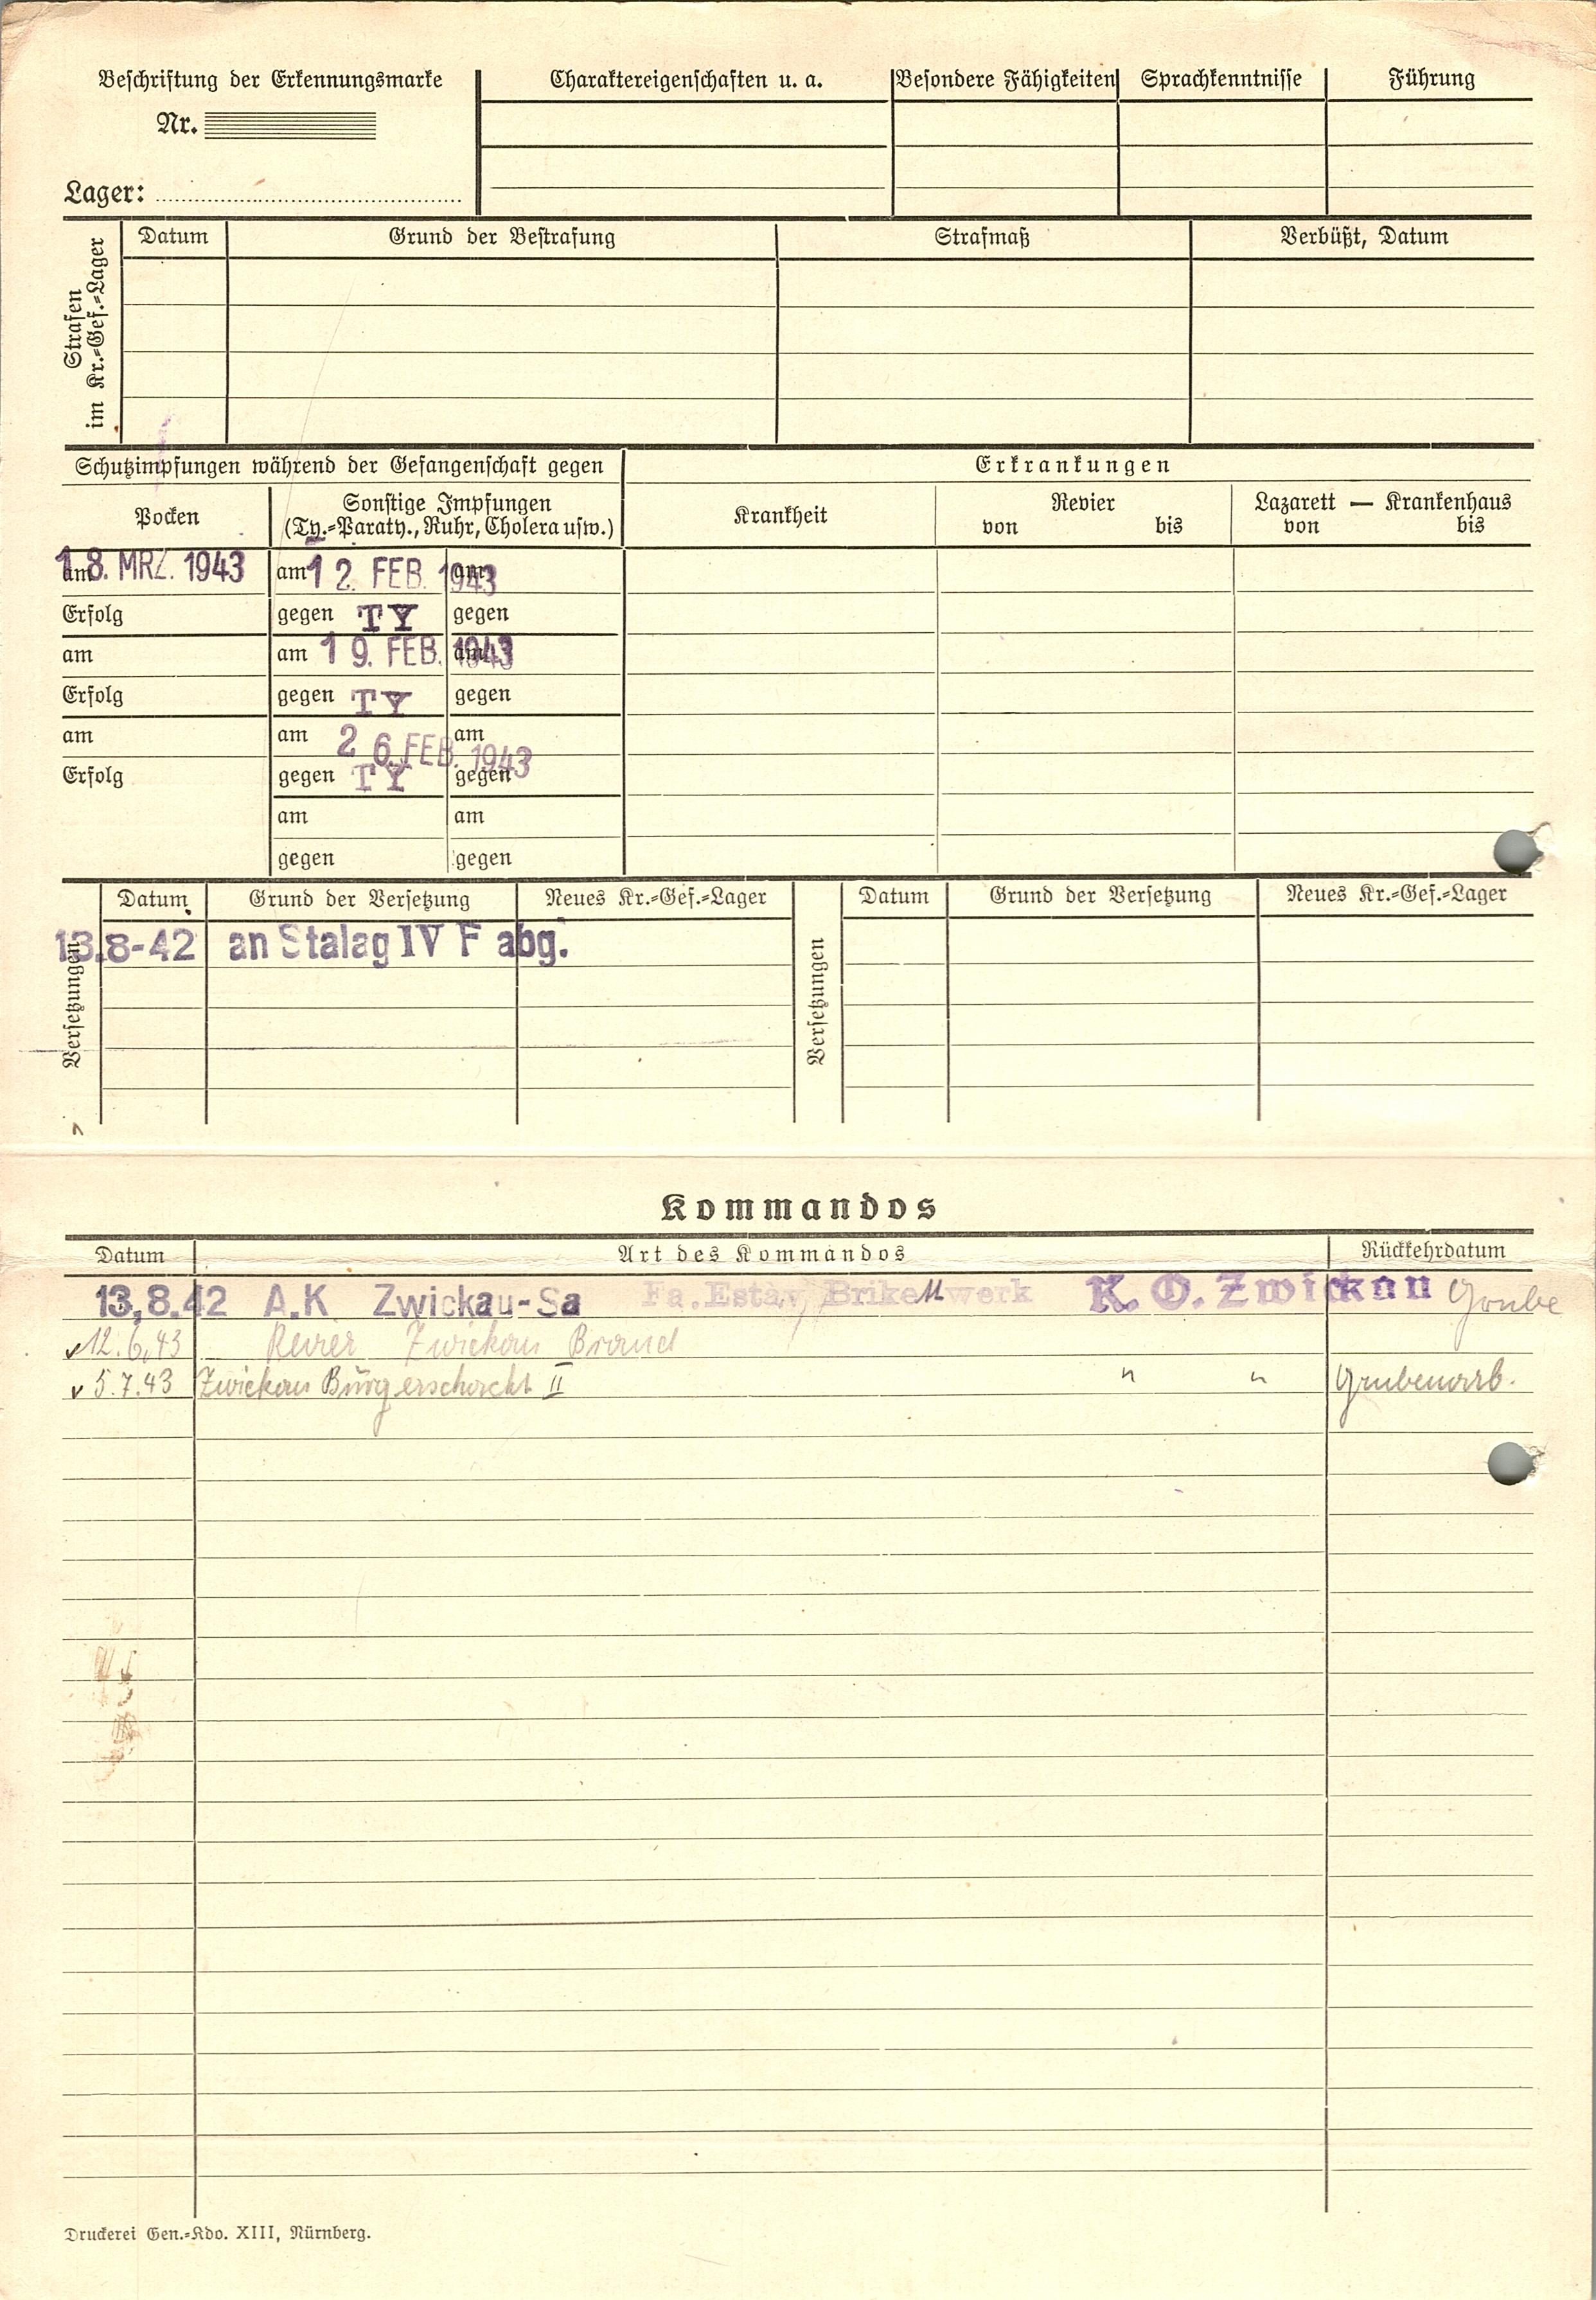 Beschriftung der Erkennungsmarke
Nr.
Lager:
Charaktereigenschaften u. a.
Besondere Fähigkeiten
Sprachkenntnisse
Führung
Strafen
im Kr.=Gef.=Lager
Datum
Grund der Bestrafung
Strafmaß
Verbüßt, Datum
Schutzimpfungen während der Gefangenschaft gegen
Erkrankungen
Pocken
Sonstige Impfungen
(Ty.=Paraty., Ruhr, Cholera usw.)
Krankheit
Revier
von bis
Lazarett — Krankenhaus
von bis
am 18. MRZ. 1943 am 12. FEB. 1943 am
Erfolg gegen TY gegen
am am 19. FEB. 1943 am
Erfolg gegen TY gegen
am am 26. FEB. 1943 am
Erfolg gegen TY gegen
am am
gegen gegen
Versetzungen
Datum Grund der Versetzung Neues Kr.=Gef.=Lager
13.8-42 an Stalag IV F abg.
Versetzungen
Datum Grund der Versetzung Neues Kr.=Gef.=Lager
Kommandos
Datum Art des Kommandos Rückkehrdatum
13.8.42 A.K Zwickau-Sa Fa. Brikettwerk K. O. Zwickau Grube
12.6.43 Revier Zwickau Brand
5.7.43 Zwickau Bürgerschacht II " " Grubenarb.
Druckerei Gen.=Kdo. XIII, Nürnberg.